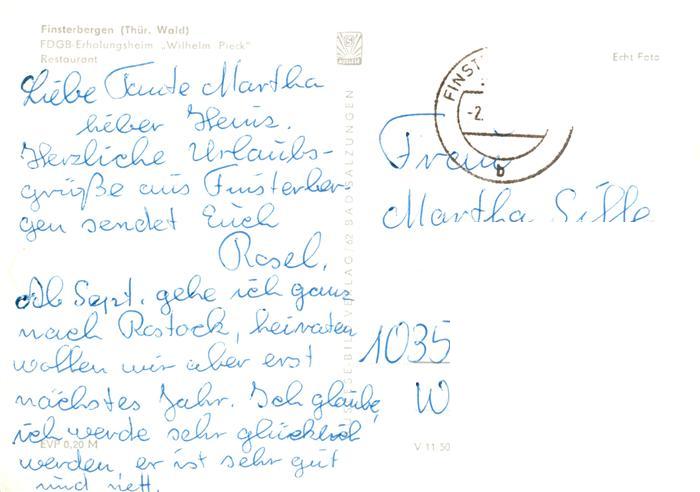 Finsterbergen (Thür. Wald)
FDGB-Erholungsheim „Wilhelm Pieck"
Restaurant
Echt Foto
Liebe Tante Martha
lieber Heinz.
Herzliche Urlaubs-
grüße aus Finsterber-
gen sendet Euch
Rosel.
Ab Sept. gehe ich ganz
nach Rostock, heiraten
wollen wir aber erst
nächstes Jahr. Ich glaube,
ich werde sehr glücklich
werden, er ist sehr gut
und nett.
EVP 0,20 M
VERLAG 62 BAD SALZUNGEN
FINST
-2.
b
Frau
Martha Sille
1035
W
V 11 50